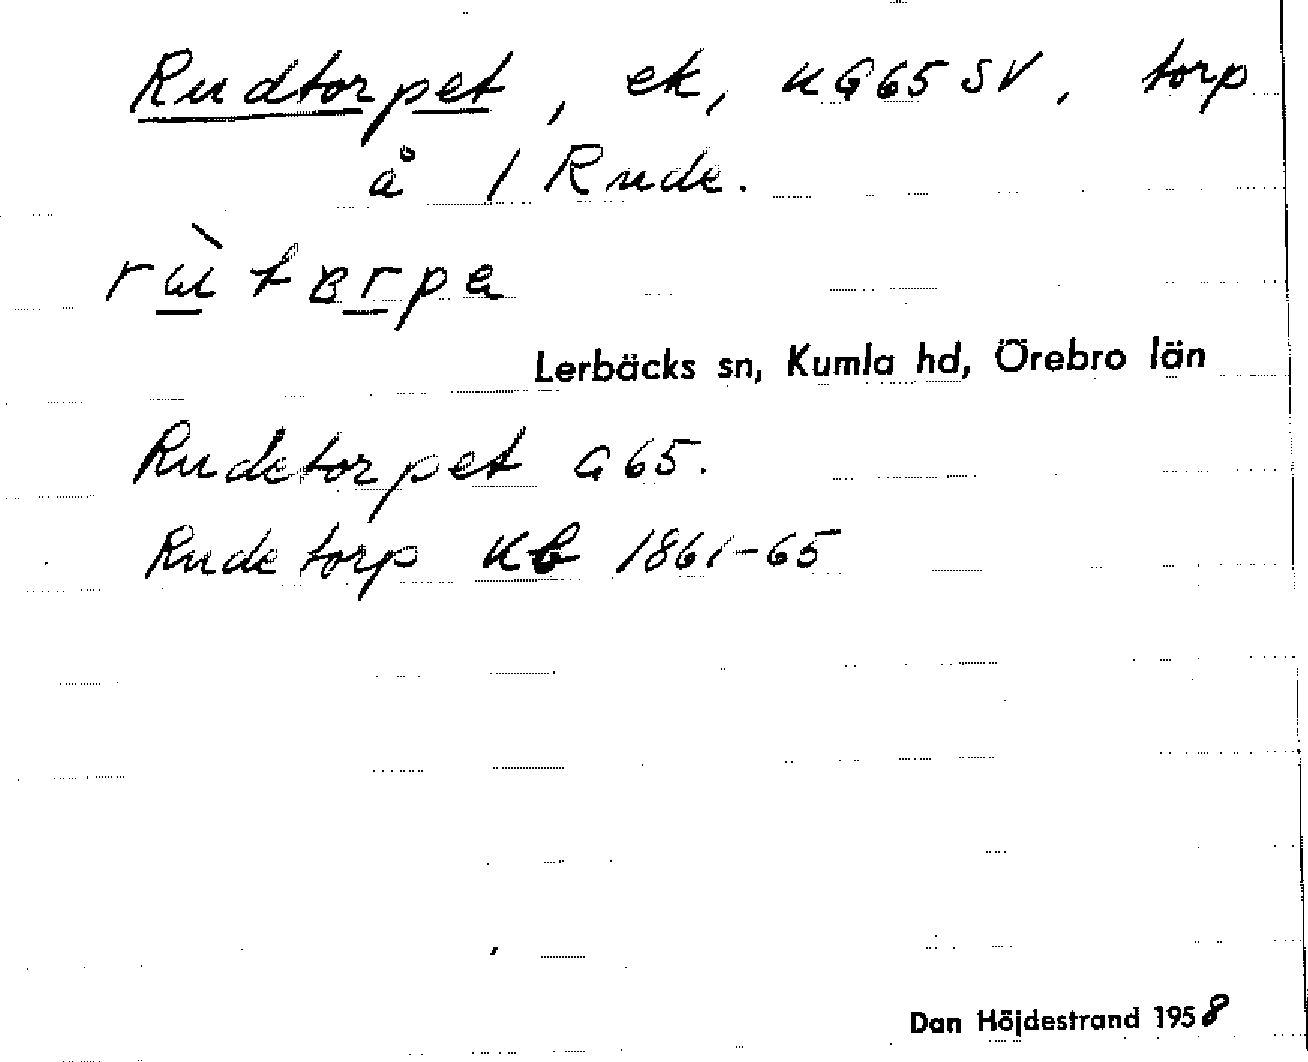 Rudtorpet, ek, KG65SV, torp
å 1 Rude.
rùtorpa
Lerbäcks sn, Kumla hd, Örebro län
Rudetorpet G65.
Rudetorp Kb 1861-65
Dan Höjdestrand 1958